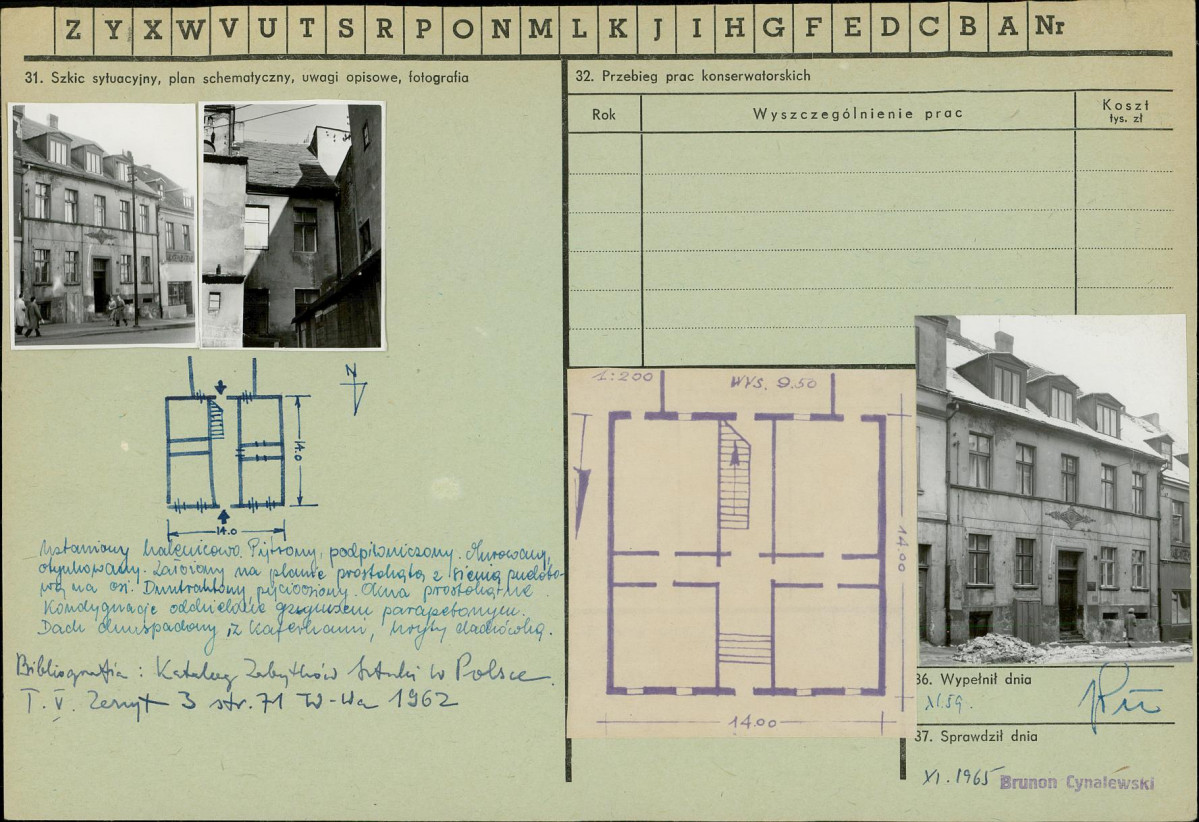 Z Y X W V U T S R P O N M L K J I H G F E D C B A Nr
31. Szkic sytuacyjny, plan schematyczny, uwagi opisowe, fotografia
N
14.0
14.0
Ustawiony kalenicowo. Piętrowy, podpiwniczony. Murowany,
otynkowany. Założony na planie prostokąta z sienią
na osi. Dwutraktowy, pięcioosiowy. Okna prostokątne.
Kondygnacje oddzielone gzymsem parapetowym.
Dach dwuspadowy z kaferkami, kryty dachówką.
Bibliografia: Katalog Zabytków Sztuki w Polsce.
T. V. Zeszyt 3 str. 71 W-wa 1962
32. Przebieg prac konserwatorskich
Rok
Wyszczególnienie prac
Koszt
tys. zł
1:200
WYS. 9.50
14.00
14.00
36. Wypełnił dnia
XI.59.
37. Sprawdził dnia
XI.1965 Brunon Cynalewski